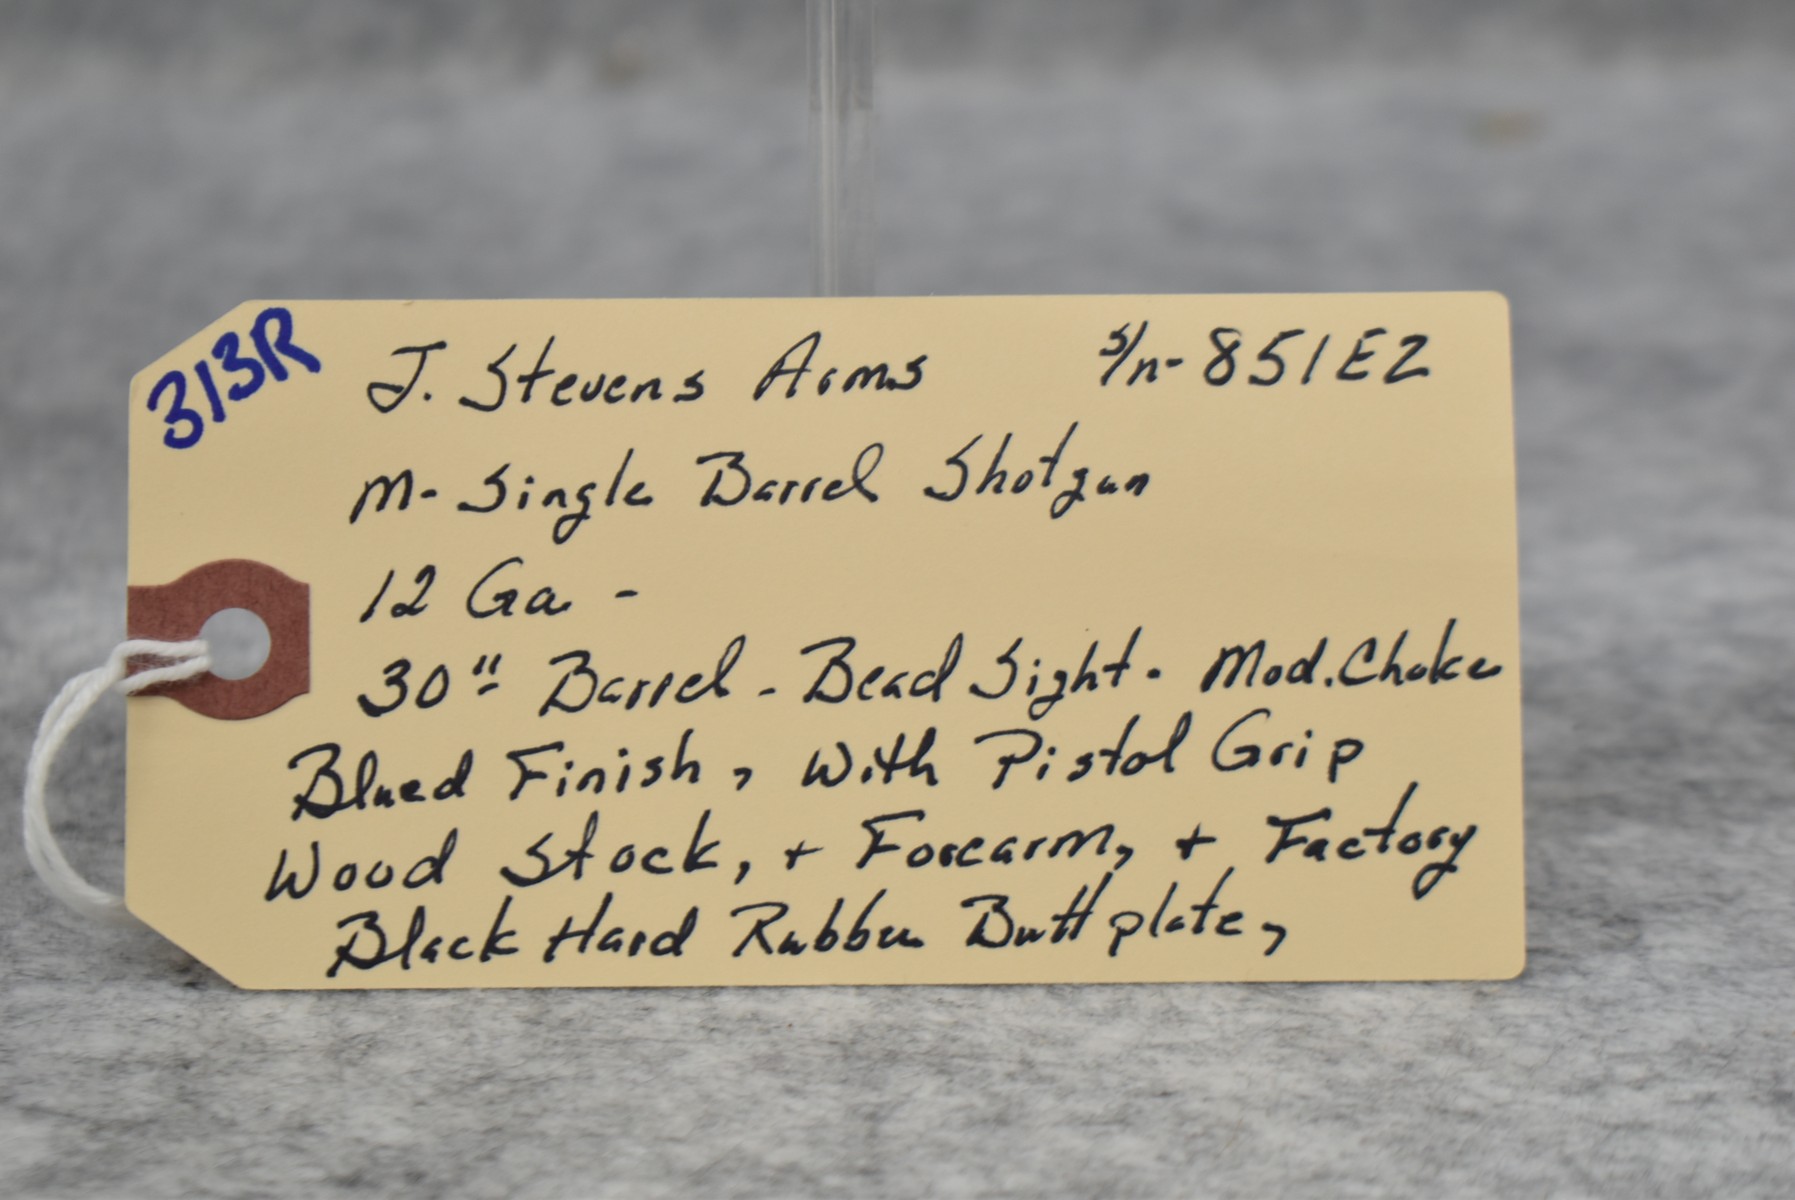 313R
J. Stevens Arms s/n- 851EZ
M- Single Barrel Shotgun
12 Ga -
30" Barrel - Bead Sight. Mod. Choke
Blued Finish, With Pistol Grip
Wood Stock, + Forearm, + Factory
Black Hard Rubber Buttplate,